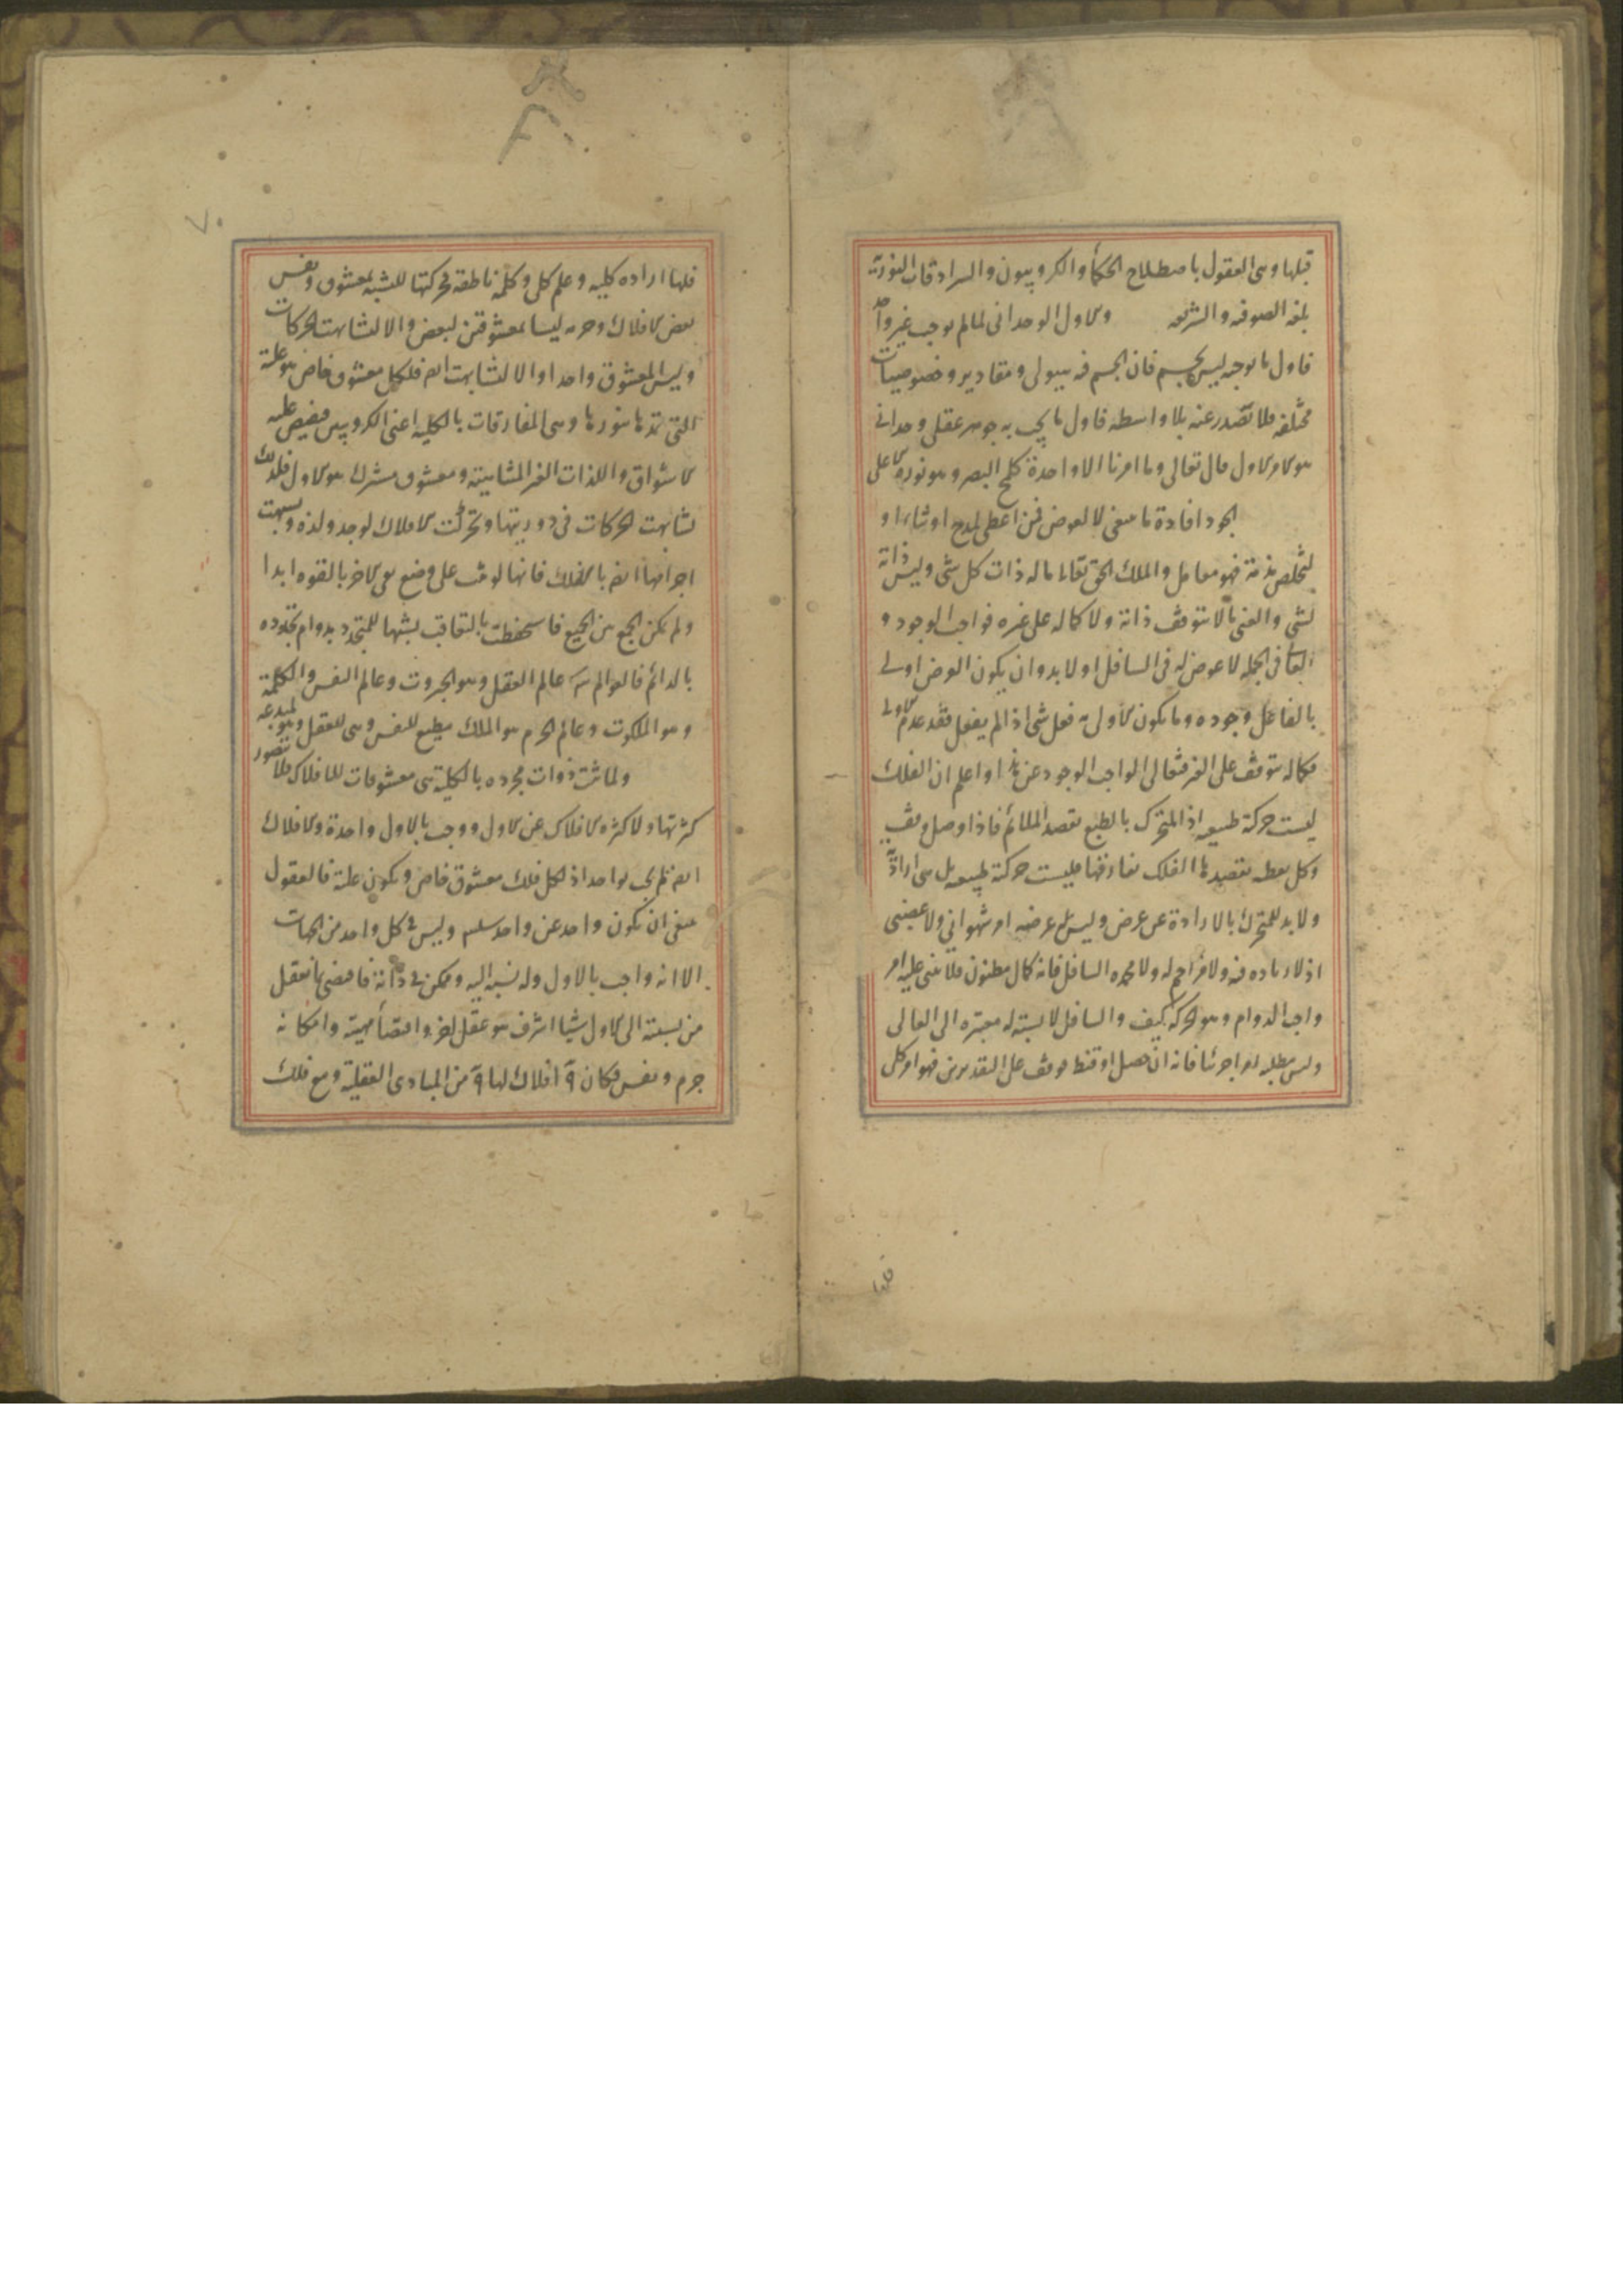 قبلها وهى العقول باصطلاح الحكمأ والكروبيون والسرادقات النورية
بلغه الصوفيه والشريعه والاول الوحدانى لما لم يوجب غير واحد
فاول ما يوجبه ليس بجسم فان الجسم فيه هيولى ومقادير وخصوصيات
مختلفه فلا تصدر عنه بلا واسطه فاول ما يجب به جوهر عقلى وحدانى
هو الامر الاول قال تعالى وما امرنا الا واحدة كلمح البصر وهو نوره الاعلى
الجود افادة ما ينبغى لا لعوض فمن اعطى لمدح او ثناء او
لتخلص مذمة فهو معامل والملك الحق تعالى ما له ذات كل شى وليس ذاته
لشى والغنى ما لا يتوقف ذاته ولا كماله على غيره فواجب الوجود
فى الجمله لا عوض له فى السافل اذ لا بد وان يكون العوض اولى
بالفاعل وجوده وما يكون الاولى به فعل شى اذا لم يفعل فقد عدم الاولى
فكماله يتوقف على الغير فتعالى الواجب الوجود عن هذا واعلم ان الفلك
ليست حركته طبيعيه اذ المتحرك بالطبع يقصد الملائم فاذا وصل وقف
وكل نقطه يقصدها الفلك يفارقها فليست حركته طبيعيه بل هى اراديّة
ولا بد للمتحرك بالارادة من غرض وليس غرضه امر شهوانى ولا غضبى
اذ لا زياده فيه ولا مزاحم له ولا محمده السافل فانه كمال مظنون فلا يبتنى عليه امر
واجب الدوام وهو الحركه كيف والسافل لا نسبته له معتبره الى العالى
وليس مطلبه امرا جزئيا فانه ان حصل او قنط وقف على التقديرين فهو امر كلى
فلها
فلها اراده كليه وعلم كلى وكلمة ناطقه فحركتها للتشبه بمعشوق ونفس
بعض الافلاك وجرمه ليسا بمعشوقين لبعض والا لتشابهت الحركات
وليس المعشوق واحدا والا لتشابهت ايضا فلكل معشوق خاص هو علته
التى تمدها بنورها وهى المفارقات بالكليه اعنى الكروبيين فيفيض عليه
الاشواق واللذات الغير المتناهية ومعشوق مشترك هو الاول فلذلك
تشابهت الحركات فى دوريتها وتحركت الافلاك لوجد ولذه وتشبهت
اجرامها ايضا بالفلك فانها لو وقفت على وضع بقى الاخر بالقوه ابدا
ولم يكن الجمع بين الجميع فاستحفظت بالتعاقب تشبها للمتجدد بدوام تجدده
بالدائم فالعوالم ثلثه عالم العقل وهو الجبروت وعالم النفس والكلمة
وهو الملكوت وعالم الجرم هو الملك يطيع للنفس وهى للعقل وهو لمبدعه
ولما ثبت ذوات مجرده بالكلية هى معشوقات للافلاك فلا تتصور
كثرتها ولا كثره الافلاك عن الاول ووجب بالاول واحدة والافلاك
ايضا لم يجب بواحد اذ لكل فلك معشوق خاص ويكون علته فالعقول
ينبغى ان يكون واحد عن واحد سلسله وليس فى كل واحد من الجهات
الا انه واجب بالاول وله نسبه اليه وممكن فى ذاته فاقتضى بما تعقل
من نسبته الى الاول شيا اشرف هو عقل اخر واقتضأ مهية وامكانه
جرم ونفس فكان ٩ افلاك لها ٩ من المبادى العقلية ومع فلك